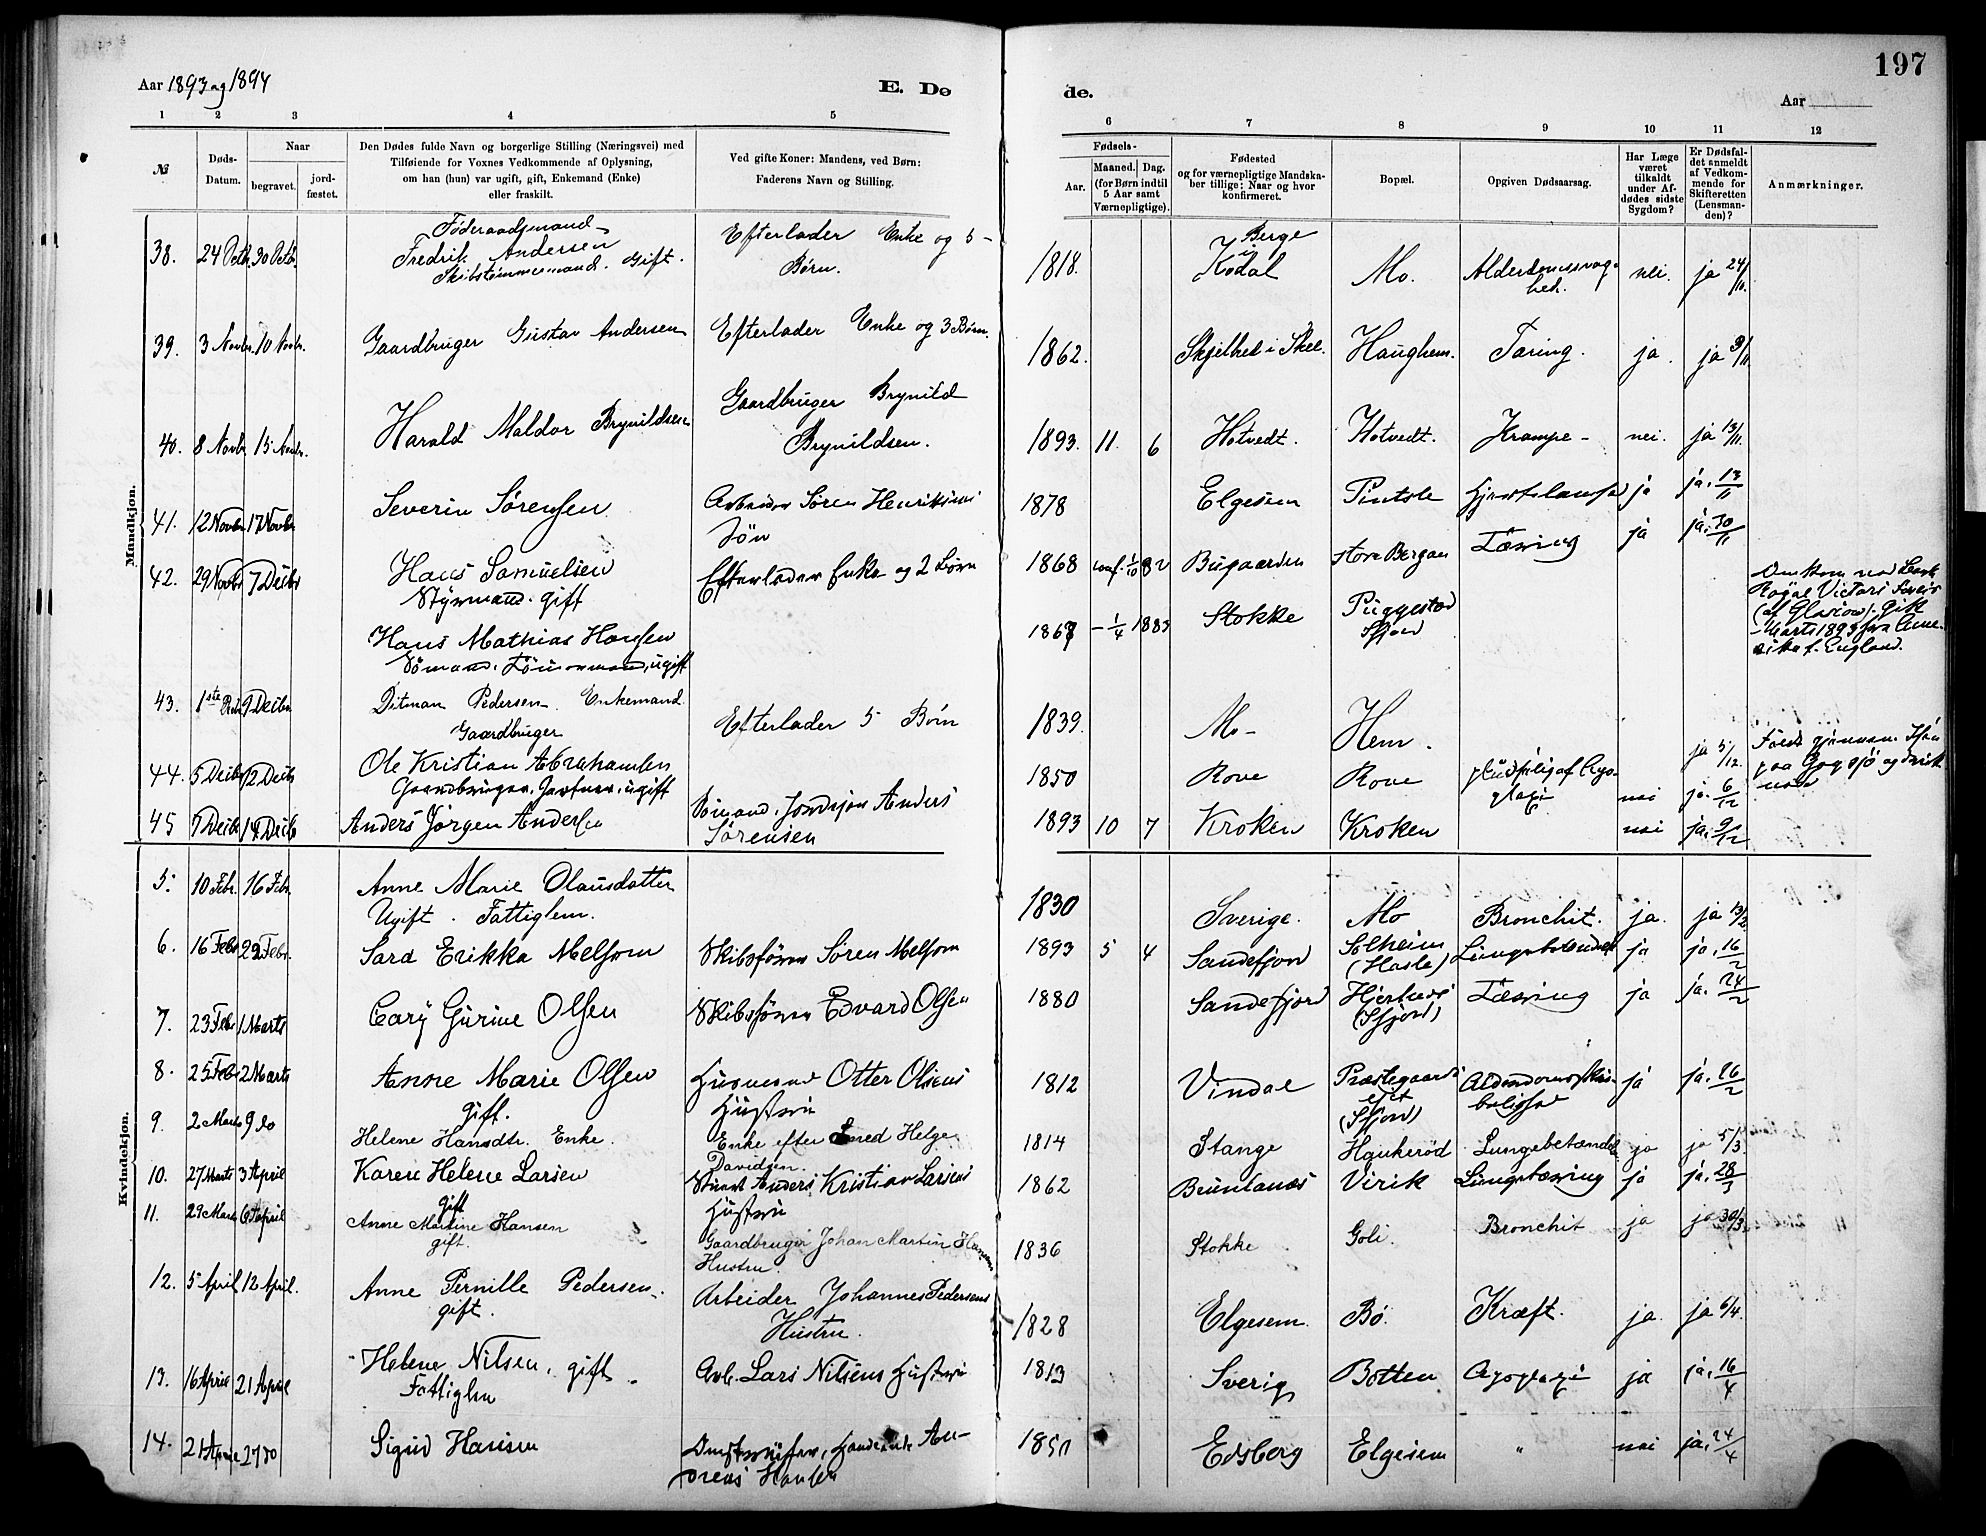 197
Aar 1893 og 1894
E. Dø
de.
Aar
1 2 3 4 5 6 7 8 9 10 11 12
№
Døds-
Datum.
Naar
begravet.
jord-
fæstet.
Den Dødes fulde Navn og borgerlige Stilling (Næringsvei) med
Tilføiende for Voxnes Vedkommende af Oplysning,
om han (hun) var ugift, gift, Enkemand (Enke)
eller fraskilt.
Ved gifte Koner: Mandens, ved Børn:
Faderens Navn og Stilling.
Fødsels-
Aar.
Maaned. Dag.
(for Børn indtil
5 Aar samt
Værnepligtige).
Fødested
og for værnepligtige Mandska-
ber tillige: Naar og hvor
konfirmeret.
Bopæl.
Opgiven Dødsaarsag.
Har Læge
været
tilkaldt
under Af-
dødes sidste
Sygdom?
Er Dødsfal-
det anmeldt
af Vedkom-
mende for
Skifteretten
(Lensman-
den)?
Anmærkninger.
Mandkjøn.
Føderaadsmand
38. 24 Octb. 30 Octb. Fredrik Andersen Efterlader Enke og 5 1818. Berge i Kodal Mo. Alderdomssvag- nei. ja 24/10.
Skibstømmermand. Gift. Børn. hed.
39. 3 Novbr. 10 Novbr. Gaardbruger Gustav Andersen Efterlader Enke og 3 Børn. 1862. i Skee. Haughem. Tæring. ja. ja 9/11
40. 8 Novbr. 15 Novbr. Harald Maldor Brynildsen Gaardbruger Brynild 1893. 11. 6 Hotvedt. Hotvedt. Krampe nei. ja 13/11.
Brynildsen.
41. 12 Novbr 17 Novbr Severin Sørensen Arbeider Søren Henriksens 1878 Elgesem Pintsle ja ja. 13/11
Søn
42. 29 Novbr 7 Decbr Hans Samuelsen Efterlader Enke og 2 Børn 1868 1/10 82 Bugaarden store Bergan Tæring ja ja. 30/11
Styrmand. gift
Hans Mathias Hansen 1867 1/4 1883 Stokke Puggestad
Sømand. Tømmermand, ugift Sfjord
Omkom med Bark
Royal
(af Glasgow). Gik
Marts 1893 fra Ame-
rika t. England.
43. 1ste Decbr 9 Decbr Ditman Pedersen. Enkemand. Efterlader 5 Børn 1839. Mo Hem. ja 5/12.
Gaardbruger
44. 5 Decbr 12 Decbr Ole Kristian Abrahamsen 1850 Rove Rove nei ja. 6/12
Gaardbruger, ugift
paa Gogsjø og druk-
nede
45 7 Decbr 14 Decb Anders Jørgen Andersen Sømand, Anders 1893 10 7 Kroken Kroken nei ja. 9/12
Sørensen
Kvindekjøn.
5. 10 Febr. 16 Febr. Anne Marie Olausdatter 1830 Sverige. Mo Bronchit. ja. ja 13/2
Ugift. Fattiglem.
6. 16 Febr 22 Febr. Sara Erikka Melsom Skibsfører Søren Melsom 1893 5 4 Sandefjord Solheim Lungebetændelse ja ja. 16/2
(Hasle)
7. 23 Febr 1 Marts Cary Gurine Olsen Skibsfører Edvard Olsen 1880 Sandefjord Tæring ja ja. 24/2
(Sfjord)
8. 25 Feb 2 Marts Anne Marie Olsen Husmand Otter Olsens 1812 Vindal Præstegaards ja ja. 26/2
gift. Hustru (Sfjord)
9. 2 Marts 9 do Helene Hansdtr. Enke. Enke efter Smed Helge 1814 Stange Haukerød Lungebetændelse ja ja 5/3.
Davidsen.
10. 27 Marts 3 April Karen Helene Larsen Anders Kristian Larsens 1862 Brunlanæs Virik Lungetæring ja ja. 28/3
gift Hustru
11. 29 Marts 6 April Anne Martine Hansen Gaardbruger Johan Martin Hansens 1836 Stokke Goli Bronchit ja ja 30/3
gift. Hustru
12. 5 April 12 April. Anne Pernille Pedersen. Arbeider Johannes Pedersens 1828 Elgesem. Bø. Kræft. ja. ja 6/4.
gift. Hustru.
13. 16 April 21 April Helene Nilsen, gift Arb. Lars Nilsens Hustru 1813 Sverig Botten Apoplexi ja ja. 16/4
Fattiglem
14. 21 April 27 do Sigrid Hansen An- 1851 Edsberg Elgesem " nei ja. 24/4
dreas Hansen